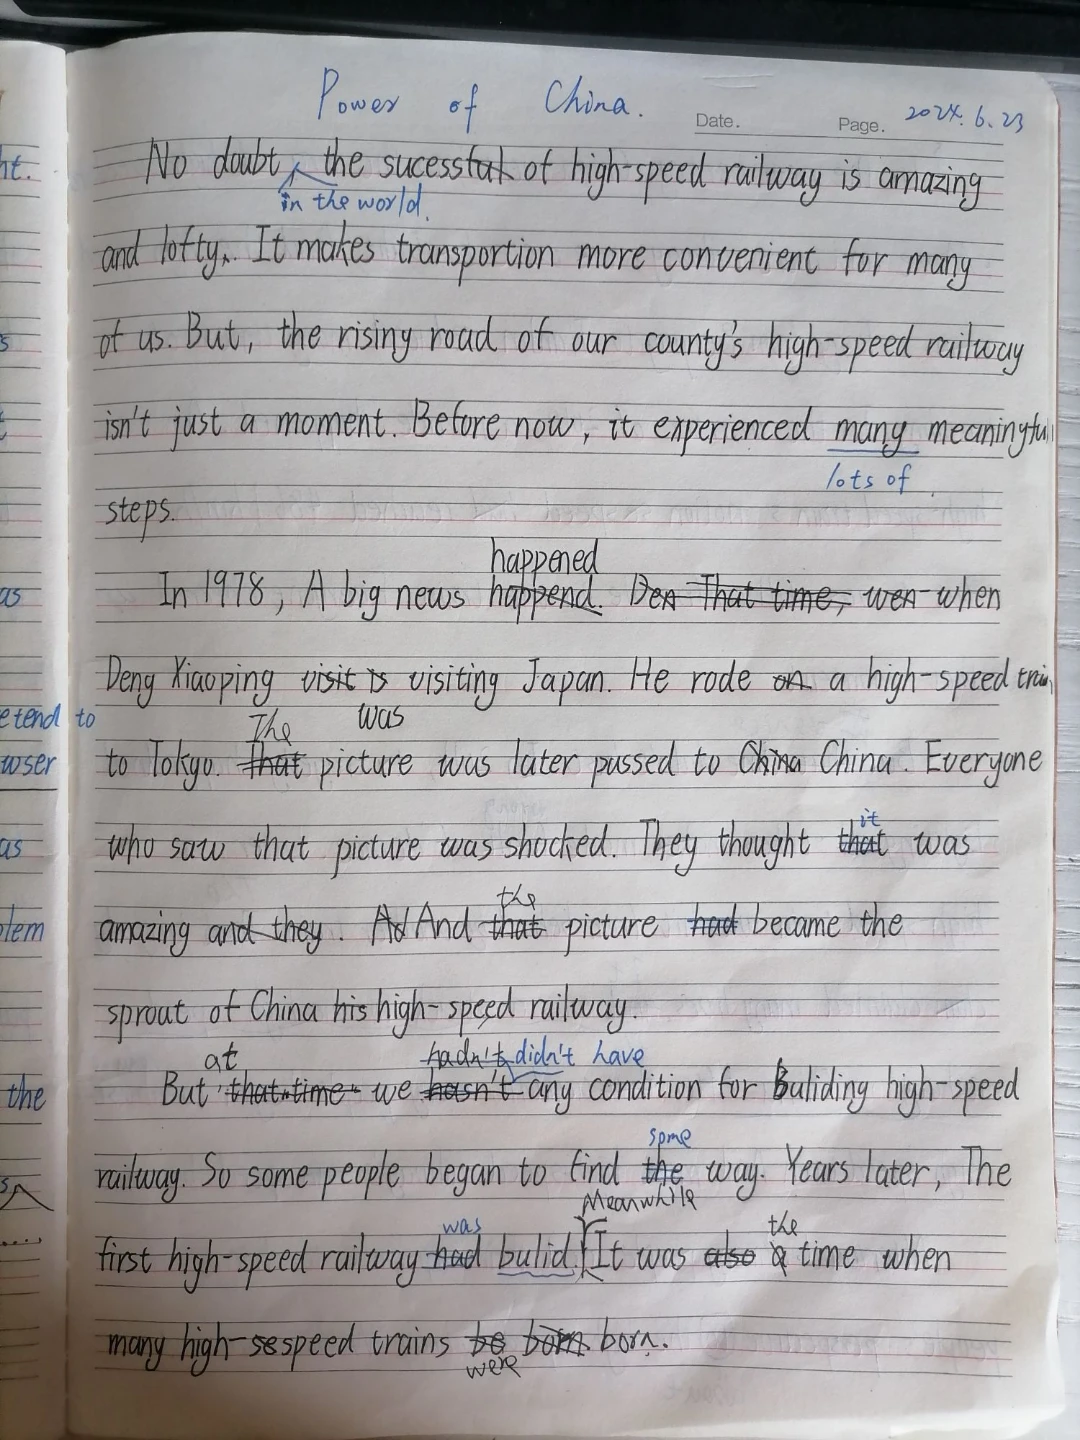 Power of China.
Date. Page. 2024.6.23
ht.
No doubt the sucessful of high-speed railway is amazing
in the world.
and lofty. It makes transportion more convenient for many
s of us. But, the rising road of our county's high-speed railway
isn't just a moment. Before now, it experienced many meaningful
lots of
steps.
happened
as In 1978, A big news happend. Den That time, wen when
Deng Xiaoping visit is visiting Japan. He rode on a high-speed train
etend to The was
wser to Tokyo. that picture was later passed to China China. Everyone
it
as who saw that picture was shocked. They thought that was
the
blem amazing and they. Ad And that picture had became the
sprout of China his high-speed railway.
at hadn't didn't have
the But that time we hasn't any condition for Buliding high-speed
some
railway. So some people began to find the way. Years later, The
Meanwhile
was the
first high-speed railway had bulid. It was also a time when
many high-sespeed trains be born born.
were